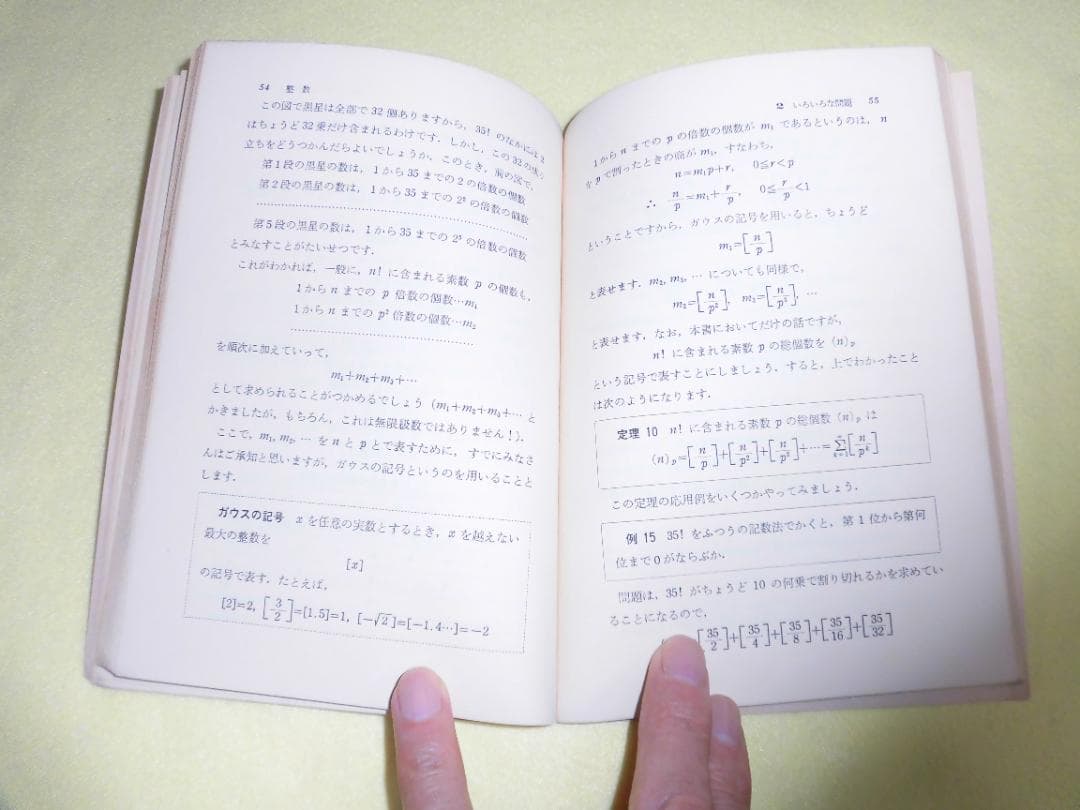 54 整数
この図で黒星は全部で 32 個ありますから，35! のなかには 2
はちょうど 32 乗だけ含まれるわけです．しかし，この 32 の成り
立ちをどうつかんだらよいでしょうか．このとき，前の図で，
第 1 段の黒星の数は，1 から 35 までの 2 の倍数の個数
第 2 段の黒星の数は，1 から 35 までの 2² の倍数の個数
………………………………………………
第 5 段の黒星の数は，1 から 35 までの 2⁵ の倍数の個数
とみなすことがたいせつです．
これがわかれば，一般に，n! に含まれる素数 p の個数も，
1 から n までの p 倍数の個数…m₁
1 から n までの p² 倍数の個数…m₂
………………………………
を順次に加えていって，
m₁+m₂+m₃+…
として求められることがつかめるでしょう（m₁+m₂+m₃+… と
かきましたが，もちろん，これは無限級数ではありません！）．
ここで，m₁, m₂, … を n と p とで表すために，すでにみなさ
んはご承知と思いますが，ガウスの記号というのを用いることと
します．
ガウスの記号 x を任意の実数とするとき，x を越えない
最大の整数を
[x]
の記号で表す．たとえば，
[2]=2, [3/2]=[1.5]=1, [-√2]=[-1.4…]=-2
2 いろいろな問題 55
1 から n までの p の倍数の個数が m₁ であるというのは，n
を p で割ったときの商が m₁，すなわち，
n=m₁p+r, 0≦r<p
∴ n/p=m₁+r/p, 0≦r/p<1
ということですから，ガウスの記号を用いると，ちょうど
m₁=[n/p]
と表せます．m₂, m₃, … についても同様で，
m₂=[n/p²], m₃=[n/p³], …
と表せます．なお，本書においてだけの話ですが，
n! に含まれる素数 p の総個数を (n)ₚ
という記号で表すことにしましょう．すると，上でわかったこと
は次のようになります．
定理 10 n! に含まれる素数 p の総個数 (n)ₚ は
(n)ₚ=[n/p]+[n/p²]+[n/p³]+…=∑[n/pᵏ]
この定理の応用例をいくつかやってみましょう．
例 15 35! をふつうの記数法でかくと，第 1 位から第何
位まで 0 がならぶか．
問題は，35! がちょうど 10 の何乗で割り切れるかを求めてい
ることになるので，
[35/2]+[35/4]+[35/8]+[35/16]+[35/32]